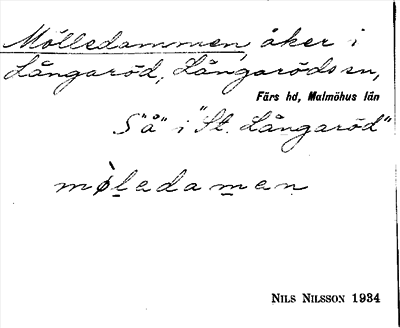 Mölledammen, åker i
Långaröd, Långaröds sn,
Färs hd, Malmöhus län
S "å" i "St. Långaröd"
mø̀ledamen
NILS NILSSON 1934